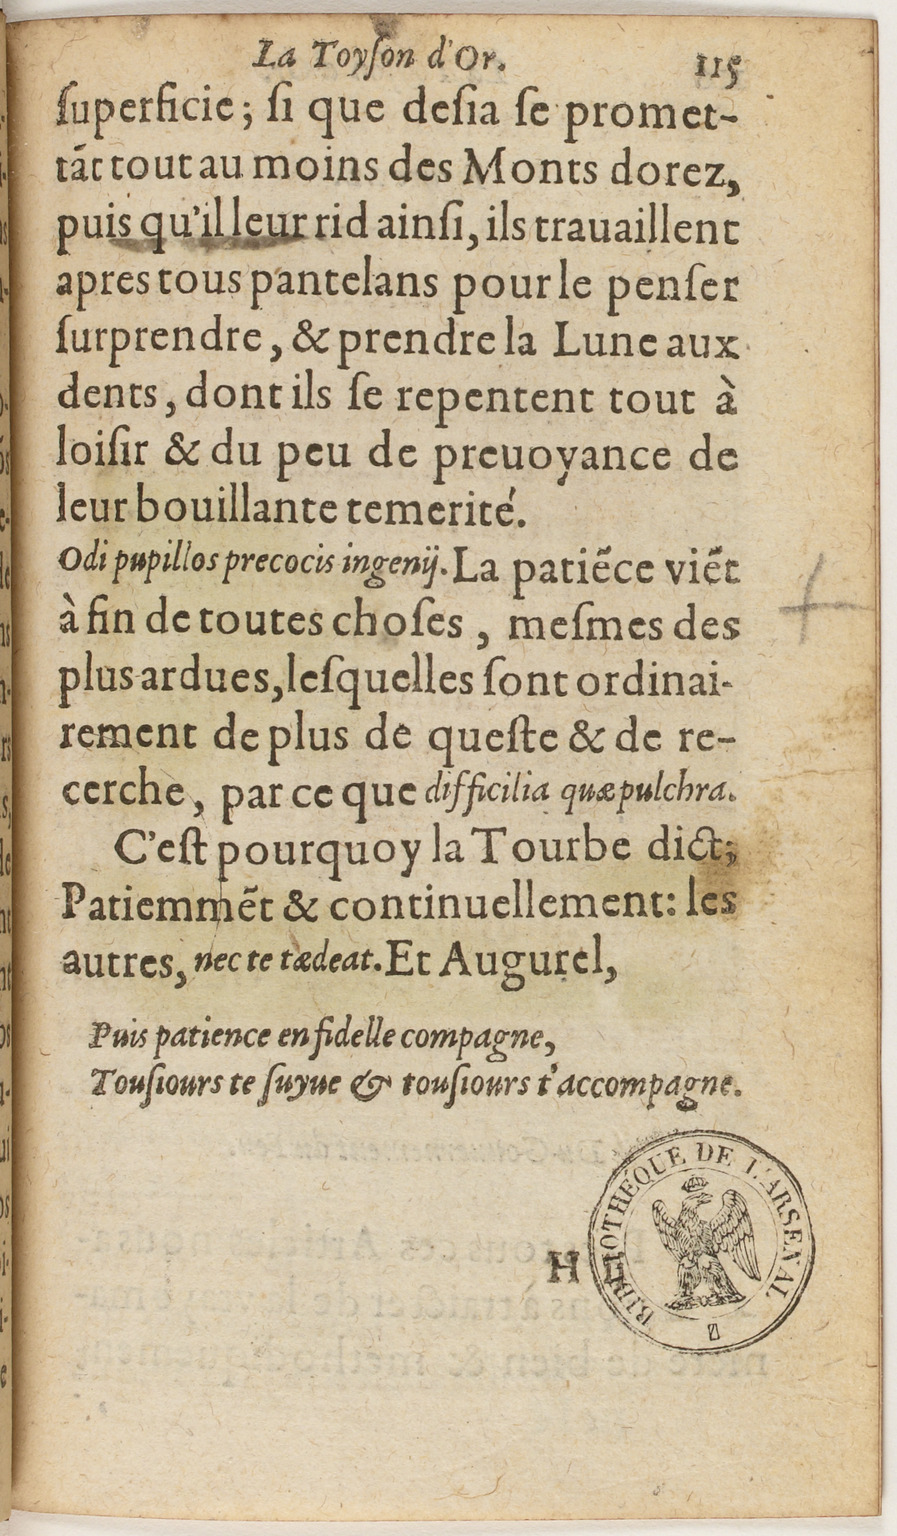 La Toyſon d'Or. 115
ſuperficie; ſi que deſia ſe promet-
tãt tout au moins des Monts dorez,
puis qu'il leur rid ainſi, ils trauaillent
apres tous pantelans pour le penſer
ſurprendre, & prendre la Lune aux
dents, dont ils ſe repentent tout à
loiſir & du peu de preuoyance de
leur bouillante temerité.
Odi pupillos precocis ingenij. La patiẽce viẽt
à fin de toutes choſes, meſmes des
plus ardues, leſquelles ſont ordinai-
rement de plus de queſte & de re-
cerche, par ce que difficilia quæ pulchra.
C'eſt pourquoy la Tourbe dict;
Patiemmẽt & continuellement: les
autres, nec te tædeat. Et Augurel,
Puis patience en fidelle compagne,
Touſiours te ſuyue & touſiours t'accompagne.
H
BIBLIOTHEQUE DE L'ARSENAL